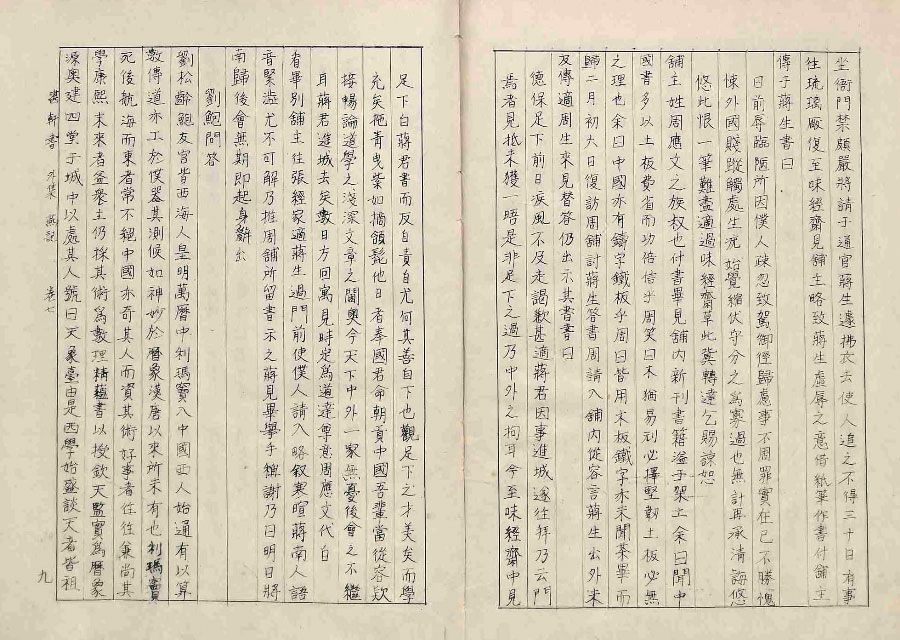 坐衙門禁頗嚴將請于通官蔣生遽拂衣去使人追之不得三十日有事
往琉璃厰復至味經齋見舖主略致蔣生虛辱之意借紙筆作書付舖主
傳于蔣生書曰
日前辱臨陋所因僕人疎忽致駕御徑歸慮事不周罪實在已不勝愧
悚外國賤蹤觸處生況始覺縮伏守分之爲寡過也無計再承清誨悠
悠此恨一筆難盡適過味經齋草此冀轉達乞賜諒恕
舖主姓周應文之族叔也付書畢見舖內新刊書籍溢于架上余曰聞中
國書多以土板費省而功倍信乎周笑曰木猶易刓必擇堅韌土板必無
之理也余曰中國亦有鑄字鐵板乎周曰皆用木板鐵字亦未聞茶畢而
歸二月初六日復訪周舖討蔣生答書周請入舖內從容言蔣生出外未
友傳適周生來見替答仍出示其書書曰
德保足下前日疾風不及走謁歉甚適蔣君因事進城遂往拜乃云門
焉者見抵未獲一晤是非足下之過乃中外之拘耳今至味經齋中見
足下白蔣君書而反自責自尤何其善自下也觀足下之才美矣而學
充矣拖青曳紫如摘頷髭他日者奉國君命朝貢中國吾輩當從容欵
接暢論道學之淺深文章之閫奧今天下中外一家無憂後會之不繼
耳蔣君進城去矣數日方回寓見時定爲道達尊意周應文代白
看畢別舖主往張經家適蔣生過門前使僕人請入略叙寒暄蔣南人語
音緊澁尤不可解乃推周舖所留書示之蔣見畢擧手稱謝乃曰明日將
南歸後會無期即起身辭出
劉鮑問答
劉松齡鮑友官皆西海人皇明萬曆中利瑪竇入中國西人始通有以算
數傳道亦工於儀器其測候如神妙於曆象漢唐以來所未有也利瑪竇
死後航海而東者常不絕中國亦奇其人而資其術好事者往往兼尚其
學康熙末來者益衆主仍採其術爲數理精蘊書以授欽天監實爲曆象
源奧建四堂于城中以處其人號曰天象臺由是西學始盛談天者皆祖
湛軒書 外集 燕記 卷七
九